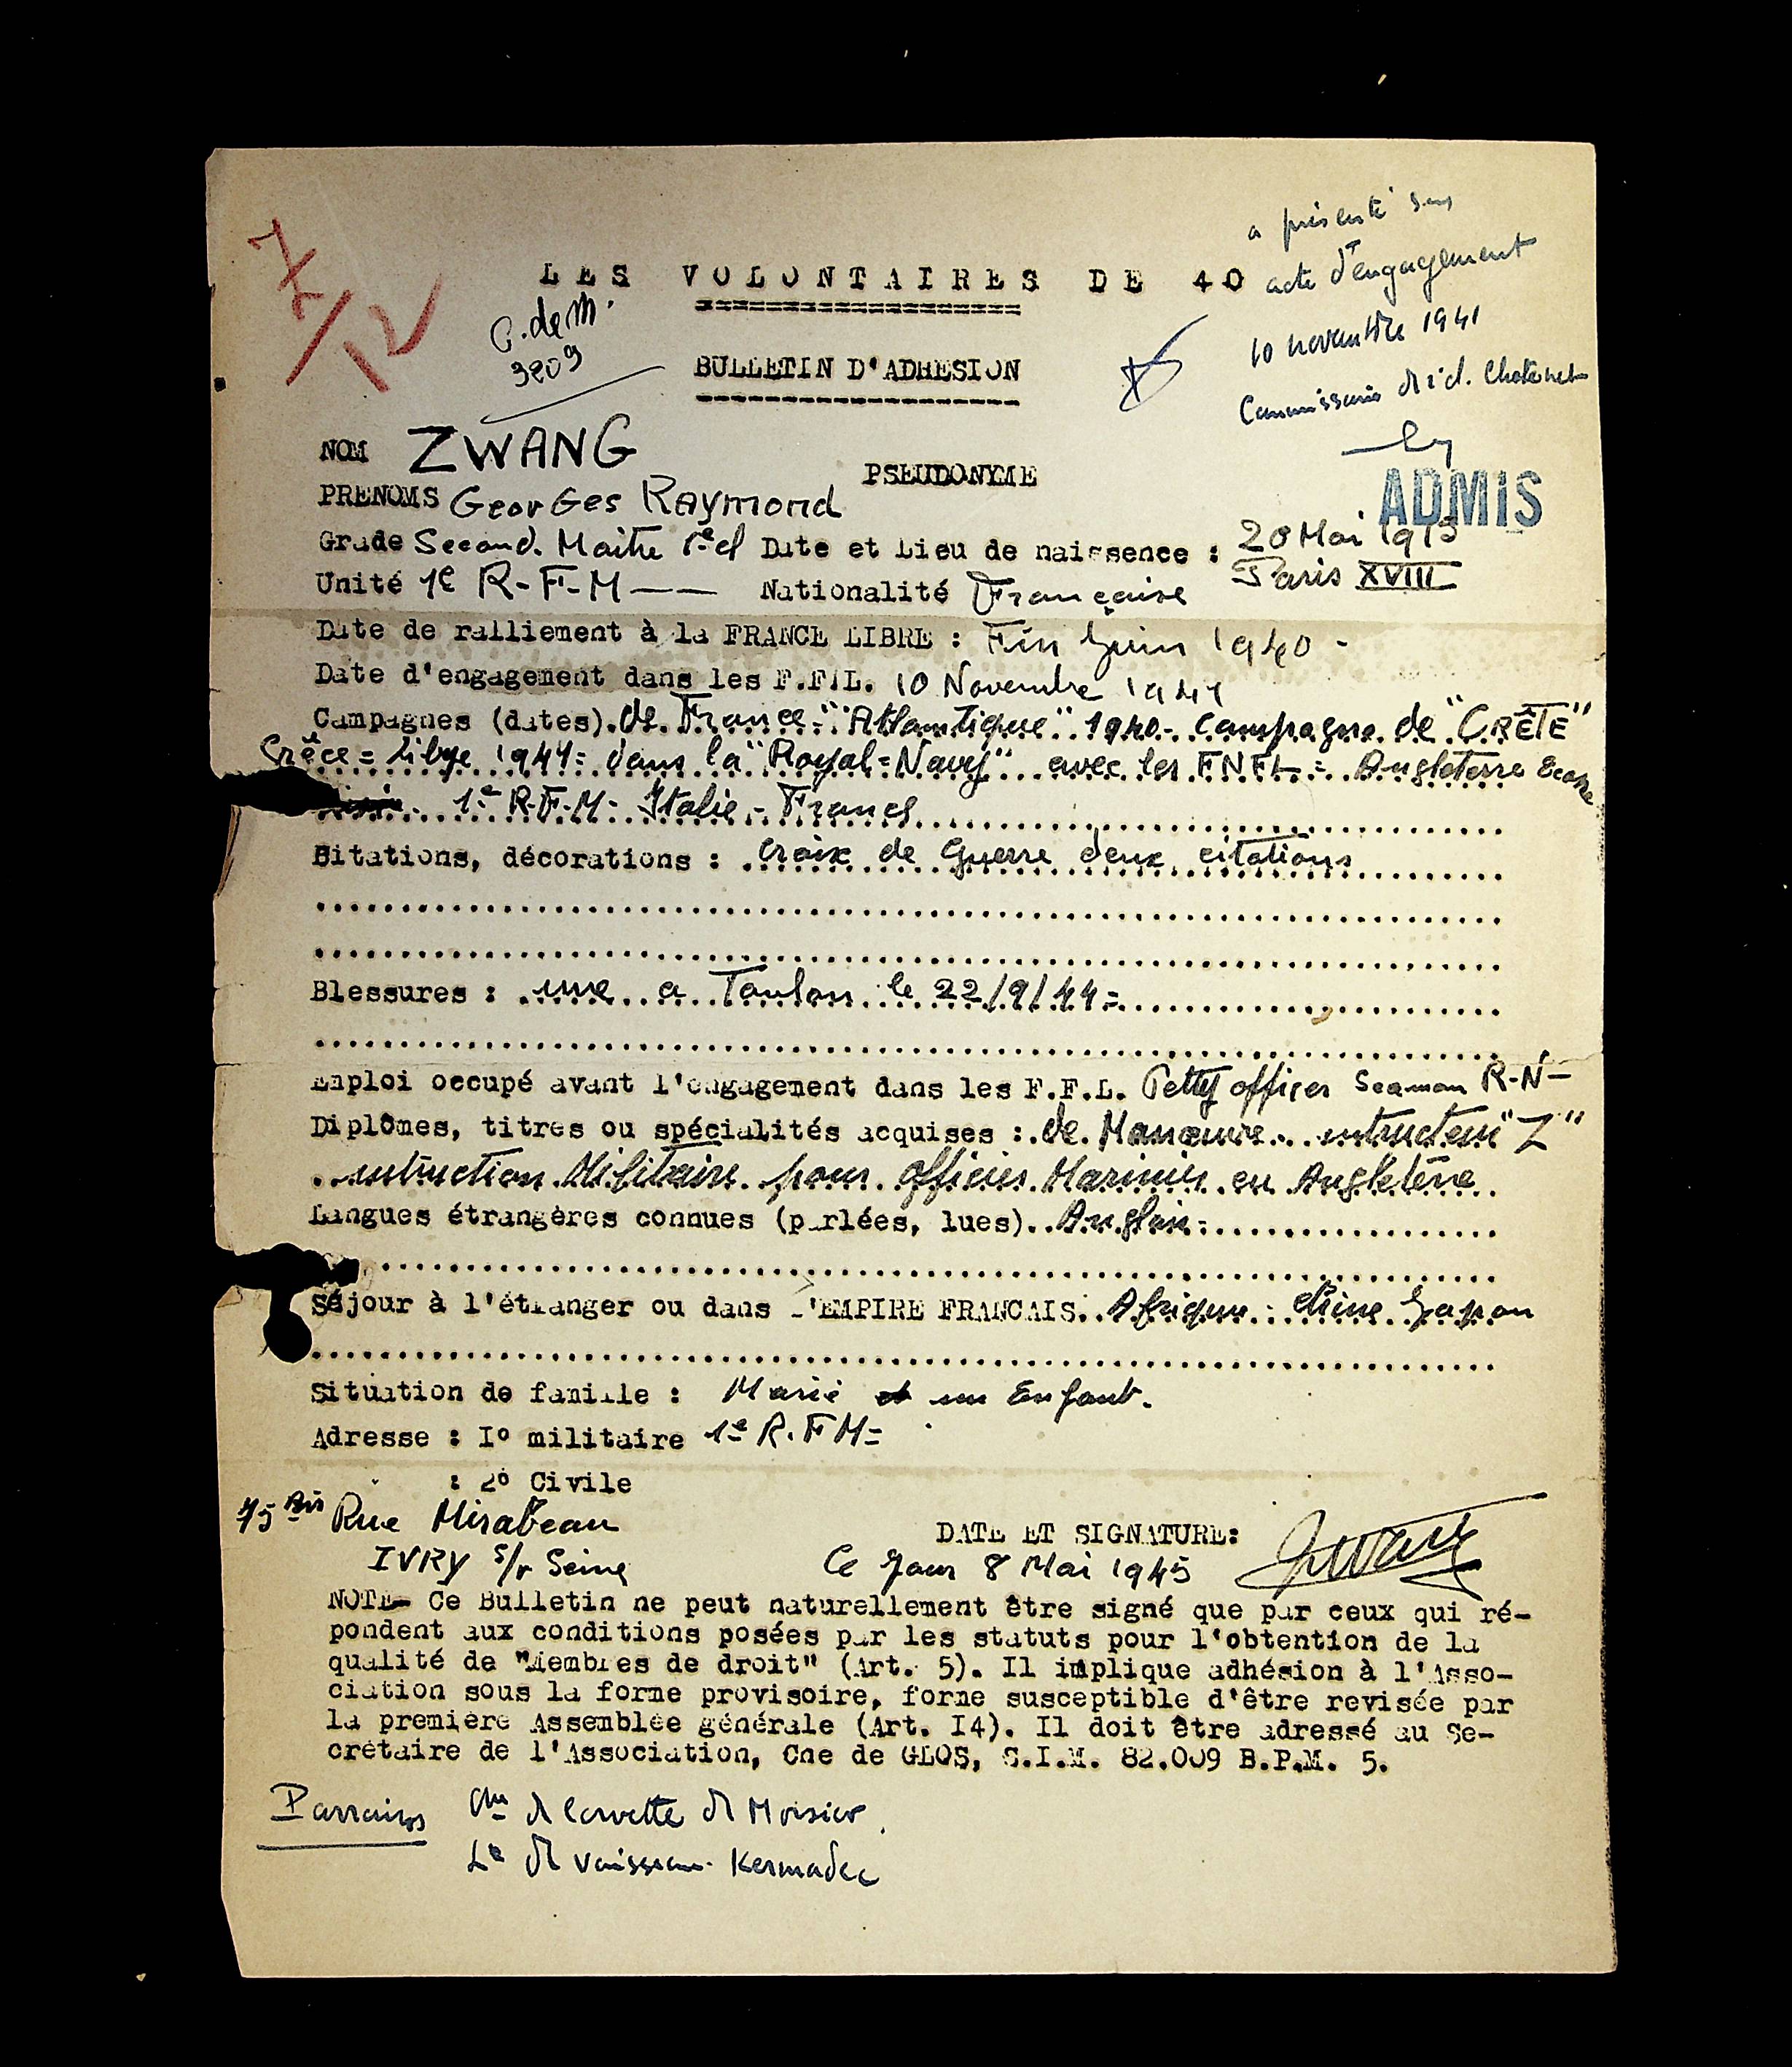 7/12
a présenté son
LES VOLONTAIRES DE 40
acte d'engagement
C. de M.
3209
10 novembre 1941
BULLETIN D'ADHESION
Commissaire de 1° cl. Chatenet
NOM ZWANG
PSEUDONYME
ADMIS
PRENOMS Georges Raymond
Grade Second. Maitre 1e cl Date et Lieu de naissence : 20 Mai 1915
Paris XVIII
Unité 1e R-F-M-- Nationalité Française
Date de ralliement à la FRANCE LIBRE : Fin Juin 1940 -
Date d'engagement dans les F.F.L. 10 Novembre 1941
Campagnes (dates). de France - "Atlantique" 1940 - Campagne de "CRÊTE"
Grèce = Libye 1941 = dans la "Royal=Navy" avec les FNFL = Angleterre Ecosse
1e R-F-M- Italie - France
Citations, décorations : Croix de Guerre deux citations
Blessures : une a Toulon le 22/9/44=
Emploi occupé avant l'engagement dans les F.F.L. Petty officer Seaman R-N-
Diplômes, titres ou spécialités acquises : de Manœuvre intructeur "Z"
intruction Militaire pour officier Marinier en Angleterre
Langues étrangères connues (parlées, lues) Anglais
Séjour à l'étranger ou dans L'EMPIRE FRANCAIS. Afrique : Chine Japon
Situation de famille : Marié et un Enfant.
Adresse : I° militaire 1e R.F M=
" : 2° Civile
75 Bis Rue Mirabeau
DATE ET SIGNATURE:
IVRY s/r Seine
Ce Jour 8 Mai 1945
NOTE- Ce Bulletin ne peut naturellement être signé que par ceux qui ré-
pondent aux conditions posées par les statuts pour l'obtention de la
qualité de "Membres de droit" (Art. 5). Il implique adhésion à l'Asso-
ciation sous la forme provisoire, forme susceptible d'être revisée par
la première Assemblée générale (Art. I4). Il doit être adressé au Se-
crétaire de l'Association, Cne de GLOS, S.I.M. 82.009 B.P.M. 5.
Parrains Cne de Corvette de Morsier
Lt de vaisseau Kermadec